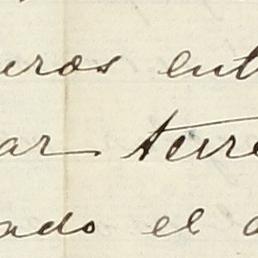 eros ent
ar terre
ado el a